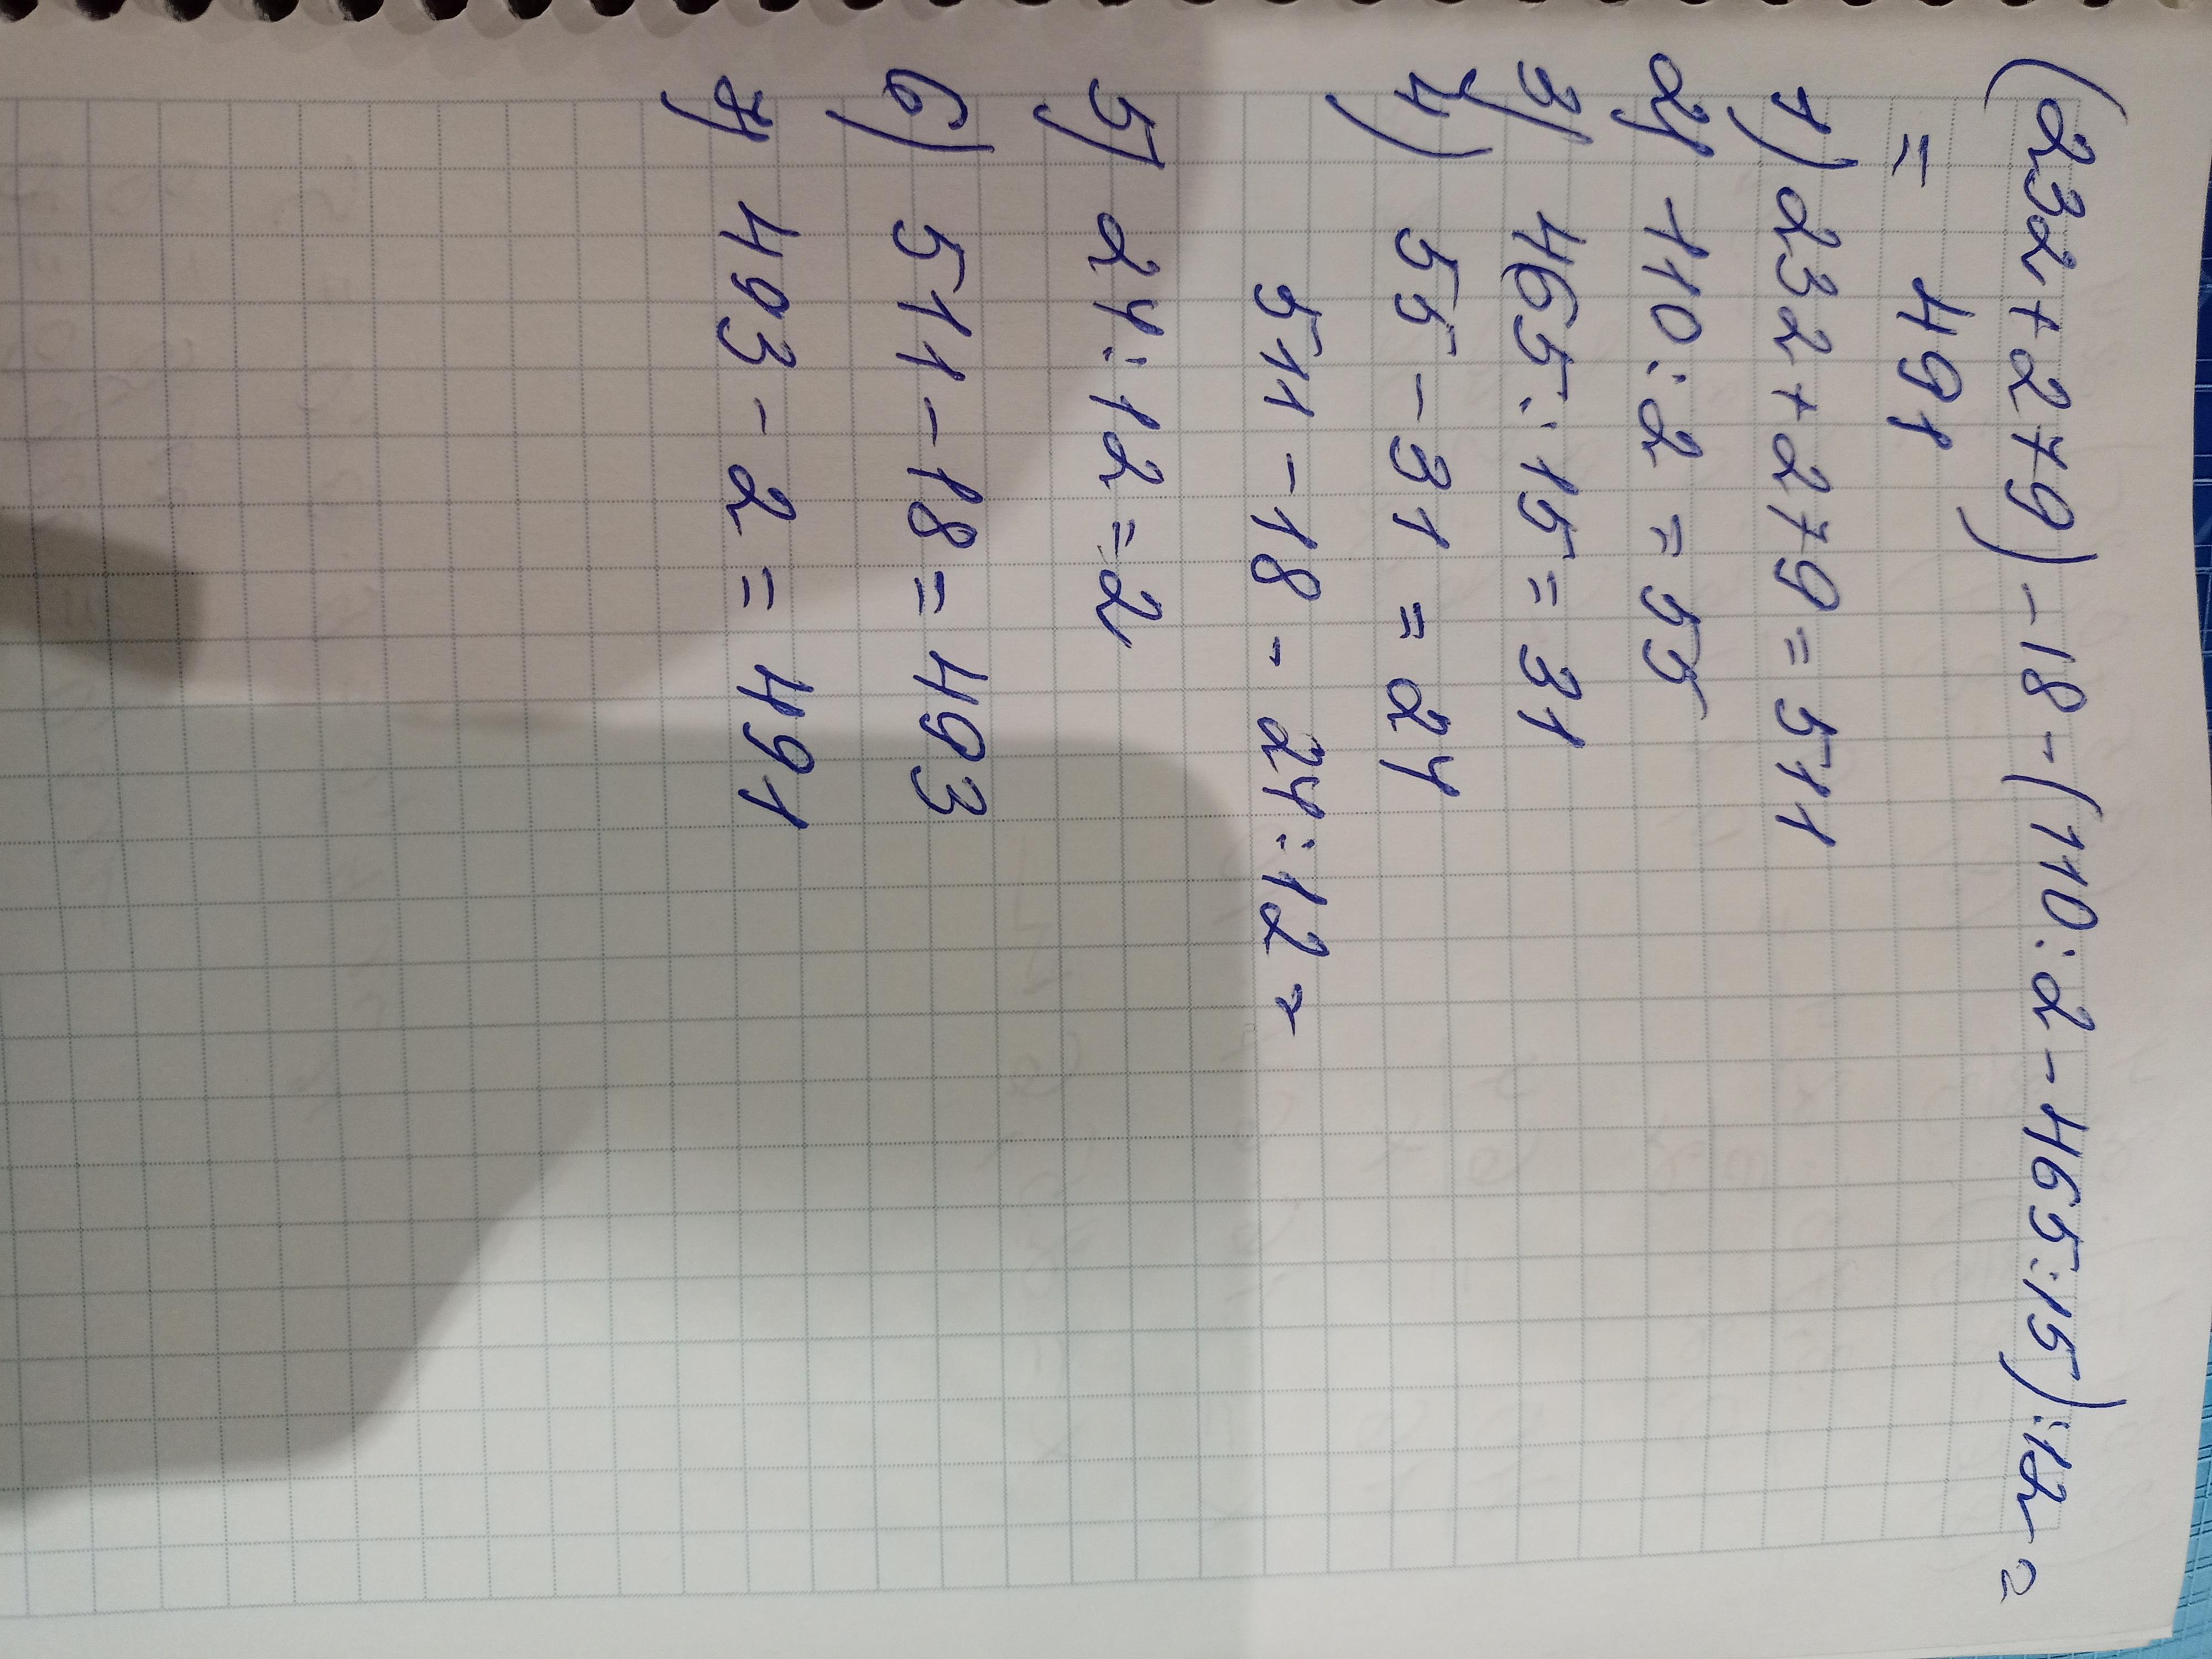 (232+279)-18-(110:2-465:15):12=
= 491
1) 232+279=511
2) 110:2=55
3) 465:15=31
4) 55-31=24
511-18-24:12=
5) 24:12=2
6) 511-18=493
7) 493-2=491